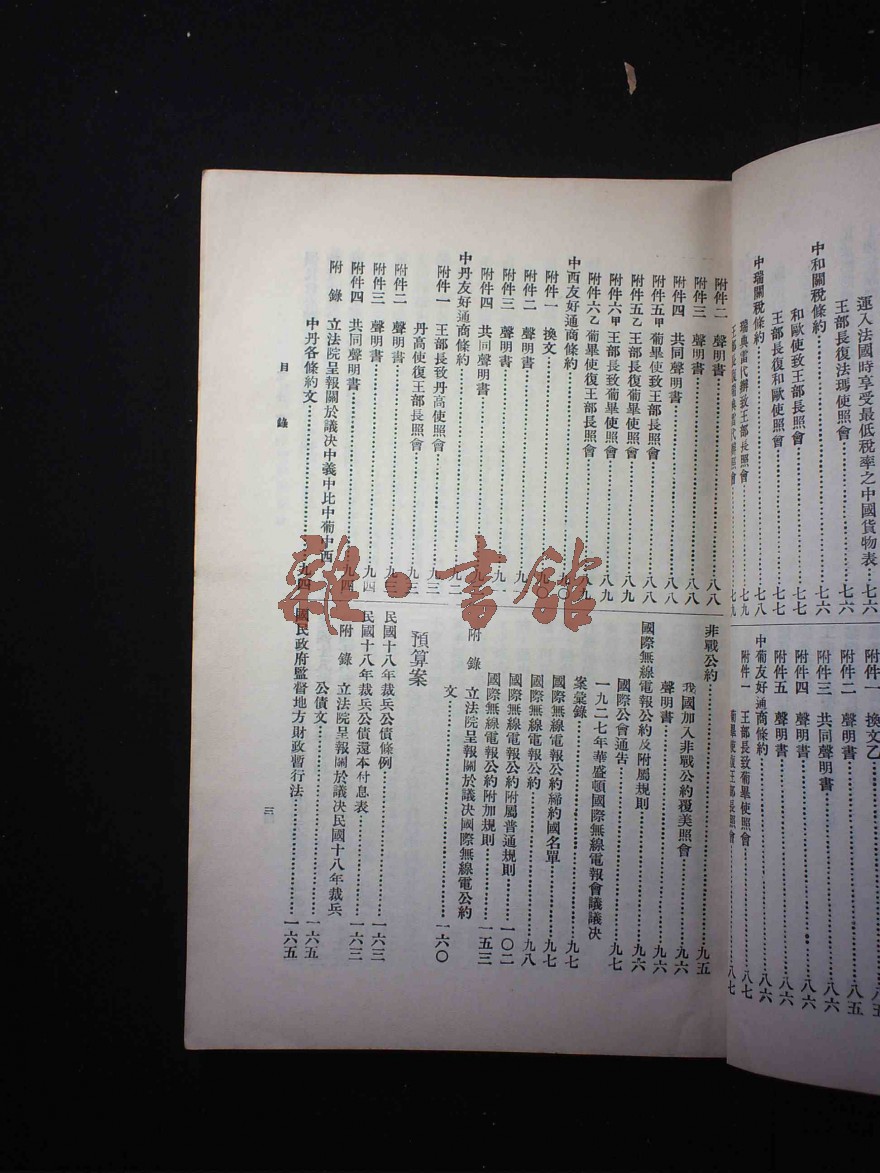 運入法國時享受最低稅率之中國貨物表……七六
王部長復法瑪使照會……七六
中和關稅條約……七六
和歐使致王部長照會……七七
王部長復和歐使照會……七七
中瑞關稅條約……七八
瑞典當代辦致王部長照會……七九
王部長復瑞典當代辦照會……七九
附件一 換文乙……八五
附件二 聲明書……八五
附件三 共同聲明書……八六
附件四 聲明書……八六
附件五 聲明書……八六
中葡友好通商條約……八六
附件一 王部長致葡畢使照會……八七
葡畢使復王部長照會……八七
附件二 聲明書……八八
附件三 聲明書……八八
附件四 共同聲明書……八八
附件五甲 葡畢使致王部長照會……八八
附件五乙 王部長復葡畢使照會……八九
附件六甲 王部長致葡畢使照會……八九
附件六乙 葡畢使復王部長照會……八九
中西友好通商條約……九〇
附件一 換文……九〇
附件二 聲明書……九一
附件三 聲明書……九一
附件四 共同聲明書……九一
中丹友好通商條約……九二
附件一 王部長致丹高使照會……九三
丹高使復王部長照會……九三
附件二 聲明書……九三
附件三 聲明書……九四
附件四 共同聲明書……九四
附 錄 立法院呈報關於議決中義中比中葡中西
中丹各條約文……九四
非戰公約……九五
我國加入非戰公約覆美照會……九六
聲明書……九六
國際無線電報公約及附屬規則……九六
國際公會通告……九七
一九二七年華盛頓國際無線電報會議議決
案彙錄……九七
國際無線電報公約締約國名單……九七
國際無線電報公約……九八
國際無線電報公約附屬普通規則……一〇二
國際無線電報公約附加規則……一五三
附 錄 立法院呈報關於議決國際無線電公約
文……一六〇
預算案
民國十八年裁兵公債條例……一六三
民國十八年裁兵公債還本付息表……一六三
附 錄 立法院呈報關於議決民國十八年裁兵
公債文……一六五
國民政府監督地方財政暫行法……一六五
目 錄
三
雜·書館